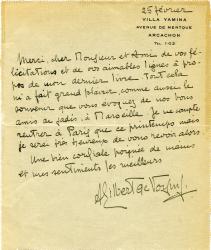 25 février
VILLA YAMINA
AVENUE DE MENTQUE
ARCACHON
Merci, cher Monsieur et Ami de vos fé-
licitations et de vos aimables lignes à pro-
pos de mon dernier livre. Tout cela
m'a fait grand plaisir, comme aussi le
souvenir que vous évoquez de nos bons
amis de jadis, à Marseille. Je ne compte
rentrer à Paris que ce printemps mais
je serai très heureux de vous revoir alors.
Une bien cordiale poignée de mains
et mes sentiments les meilleurs
Gilbert de Voisins